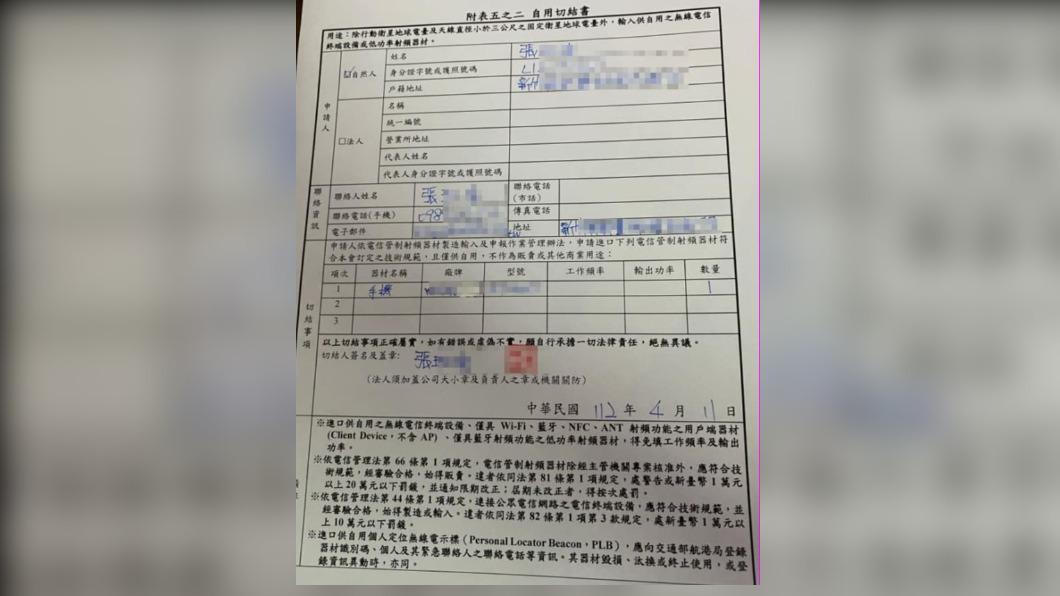 附表五之二 自用切結書
用途：除行動衛星地球電臺及天線直徑小於三公尺之固定衛星地球電臺外，輸入供自用之無線電信
終端設備或低功率射頻器材。
申請人
☑自然人
姓名 張
身分證字號或護照號碼 L1
戶籍地址 新
□法人
名稱
統一編號
營業所地址
代表人姓名
代表人身分證字號或護照號碼
聯絡資訊
聯絡人姓名 張
聯絡電話（市話）
聯絡電話(手機) 098
傳真電話
電子郵件
地址 新
切結事項
申請人依電信管制射頻器材製造輸入及申報作業管理辦法，申請進口下列電信管制射頻器材符
合本會訂定之技術規範，且僅供自用，不作為販賣或其他商業用途：
項次 器材名稱 廠牌 型號 工作頻率 輸出功率 數量
1 手機 1
2
3
以上切結事項正確屬實，如有錯誤或虛偽不實，願自行承擔一切法律責任，絕無異議。
切結人簽名及蓋章: 張
（法人須加蓋公司大小章及負責人之章或機關關防）
中華民國 112 年 4 月 11 日
※進口供自用之無線電信終端設備、僅具 Wi-Fi、藍牙、NFC、ANT 射頻功能之用戶端器材
(Client Device，不含 AP) 、僅具藍牙射頻功能之低功率射頻器材，得免填工作頻率及輸出
功率。
※依電信管理法第 66 條第 1 項規定，電信管制射頻器材除經主管機關專案核准外，應符合技
術規範，經審驗合格，始得販賣。違者依同法第 81 條第 1 項規定，處警告或新臺幣 1 萬元
以上 20 萬元以下罰鍰，並通知限期改正；屆期未改正者，得按次處罰。
※依電信管理法第 44 條第 1 項規定，連接公眾電信網路之電信終端設備，應符合技術規範，並
經審驗合格，始得製造或輸入。違者依同法第 82 條第 1 項第 3 款規定，處新臺幣 1 萬元以
上 10 萬元以下罰鍰。
※進口供自用個人定位無線電示標（Personal Locator Beacon，PLB），應向交通部航港局登錄
器材識別碼、個人及其緊急聯絡人之聯絡電話等資訊。其器材毀損、汰換或終止使用，或登
錄資訊異動時，亦同。